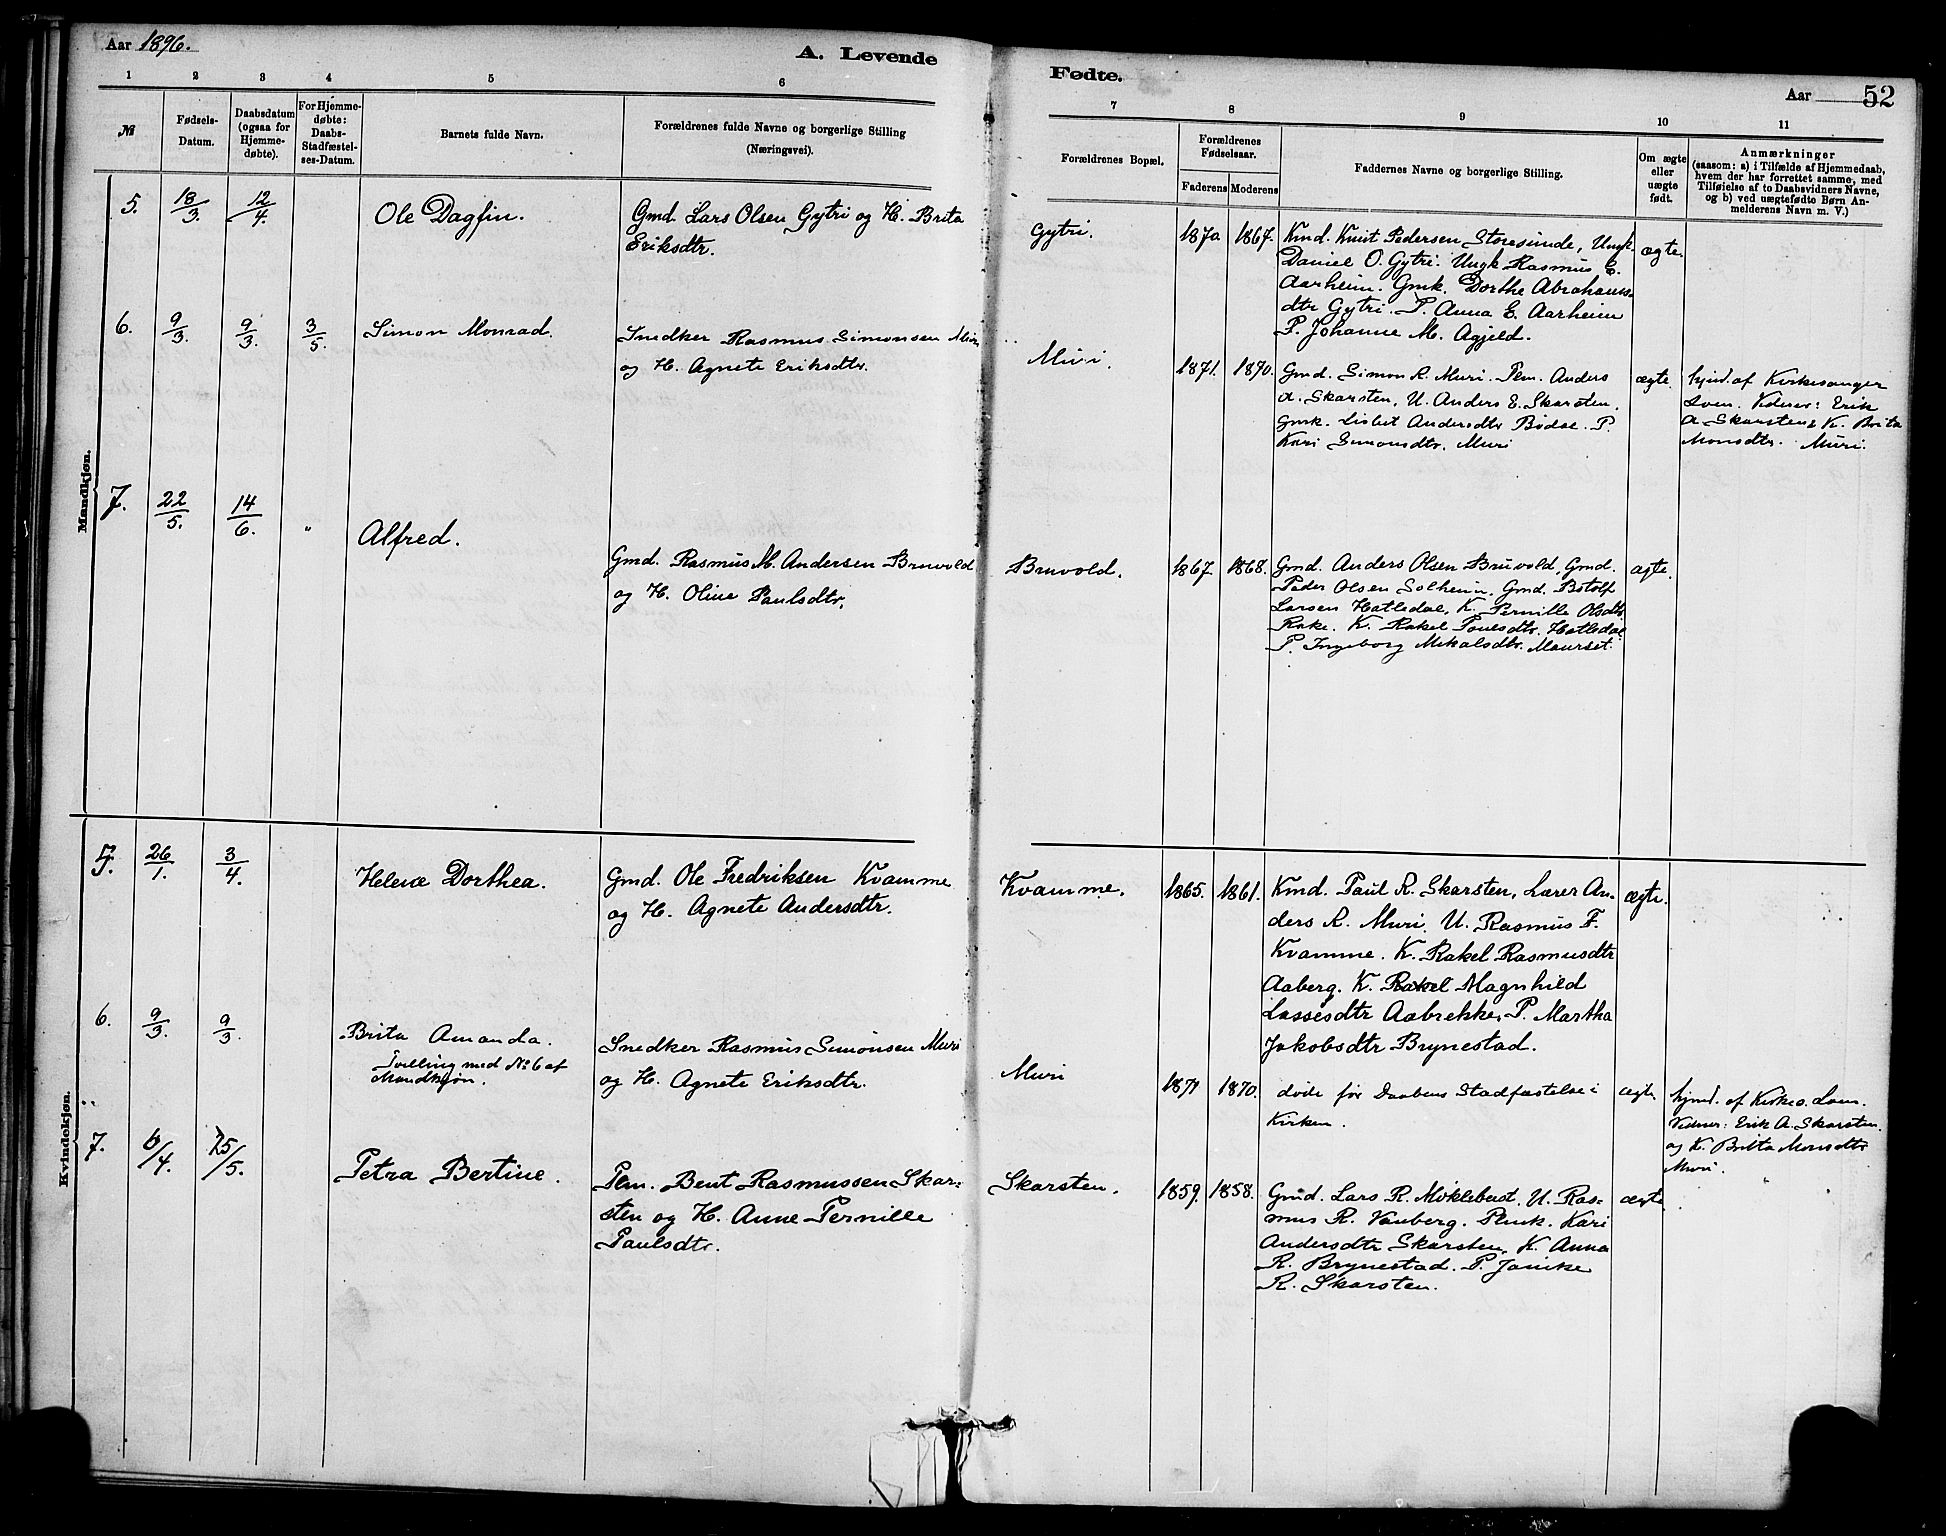 Aar 1896.
A. Levende
Fødte.
Aar 52
1 2 3 4 5 6
7 8 9 10 11
№
Fødsels-
Datum.
Daabsdatum
(ogsaa for
Hjemme-
døbte).
For Hjemme-
døbte:
Daabs-
Stadfæstel-
ses-Datum.
Barnets fulde Navn.
Forældrenes fulde Navne og borgerlige Stilling
(Næringsvei).
Forældrenes Bopæl.
Forældrenes
Fødselsaar.
Faderens Moderens
Faddernes Navne og borgerlige Stilling.
Om ægte
eller
uægte
født.
Anmærkninger
(saasom: a) i Tilfælde af Hjemmedaab,
hvem der har forrettet samme, med
Tilføielse af to Daabsvidners Navne,
og b) ved uægtefødte Børn An-
melderens Navn m. V.)
Mandkjøn.
5. 18/3. 12/4. Ole Dagfin.
Gmd. Lars Olsen Gytri og H. Brita
Eriksdtr.
Gytri. 1870 1867.
Kmd. Knut Pedersen Storesunde, Ungk.
Daniel O. Gytri. Ungk Rasmus E.
Aarheim. Gmk. Dorthe Abrahams-
dtr Gytri. P. Anna E. Aarheim
P. Johanne M. Agjeld.
ægte.
6. 9/3. 9/3. 3/5. Simon Monrad.
Snedker Rasmus Simonsen Muri
og H. Agnete Eriksdtr.
Muri. 1871. 1870.
Gmd. Simon R. Muri. Plm. Anders
A. Skarsten, U. Anders E. Skarsten,
Gmk. Lisbet Andersdtr Bødal. P.
Kari Simonsdtr. Muri
ægte.
hjmd. af Kirkesanger
Loen. Vidner: Erik
A. Skarsten & K. Brita
Monsdtr. Muri.
7. 22/5. 14/6. " Alfred.
Gmd. Rasmus M. Andersen Bruvold
og H. Oline Paulsdtr.
Bruvold. 1867. 1868.
Gmd. Anders Olsen Bruvold, Gmd.
Peder Olsen Solheim, Gmd. Botolf
Larsen Hatledal, K. Pernille Olsdtr
Rake. K. Rakel Paulsdtr. Hatledal
P. Ingeborg Mikalsdtr. Maurset.
ægte.
Kvindekjøn.
5. 26/1. 3/4. Helene Dorthea.
Gmd. Ole Fredriksen Kvamme
og H. Agnete Andersdtr.
Kvamme. 1865. 1861.
Kmd. Paul R. Skarsten, Lærer An-
ders R. Muri, U. Rasmus F.
Kvamme. K. Rakel Rasmusdtr
Aaberg. K. Rakel Magnhild
Lassesdtr Aabrekke, P. Martha
Jakobsdtr Brynestad.
ægte.
6. 9/3. 9/3. Brita Amanda.
Tvilling med No 6 af
Mandkjøn.
Snedker Rasmus Simonsen Muri
og H. Agnete Eriksdtr.
Muri 1871 1870.
døde før Daabens Stadfæstelse i
Kirken.
ægte
hjmd. af Kirkes. Loen.
Vidner: Erik A. Skarsten
og K. Brita Monsdtr
Muri.
7. 6/4. 25/5. Petra Bertine.
Plm. Bent Rasmussen Skar-
sten og H. Anne Pernille
Paulsdtr.
Skarsten. 1859. 1858.
Gmd. Lars R. Møklebust. U. Ras-
mus R. Vanberg. Plmk. Kari
Andersdtr Skarsten, K. Anna
R. Brynestad. P. Janike
R. Skarsten.
ægte